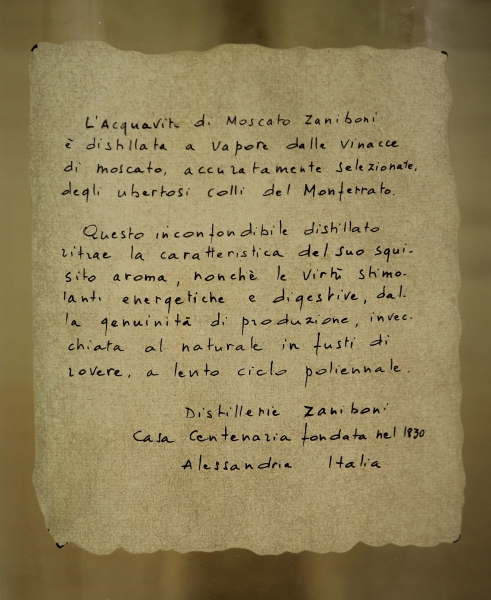 L'Acquavite di Moscato Zaniboni
è distillata a vapore dalle vinacce
di moscato, accuratamente selezionate,
degli ubertosi colli del Monferrato.
Questo inconfondibile distillato
ritrae la caratteristica del suo squi-
sito aroma, nonchè le virtù stimo-
lanti energetiche e digestive, dal-
la genuinità di produzione, invec-
chiata al naturale in fusti di
rovere, a lento ciclo poliennale.
Distillerie Zaniboni
Casa Centenaria fondata nel 1830
Alessandria Italia